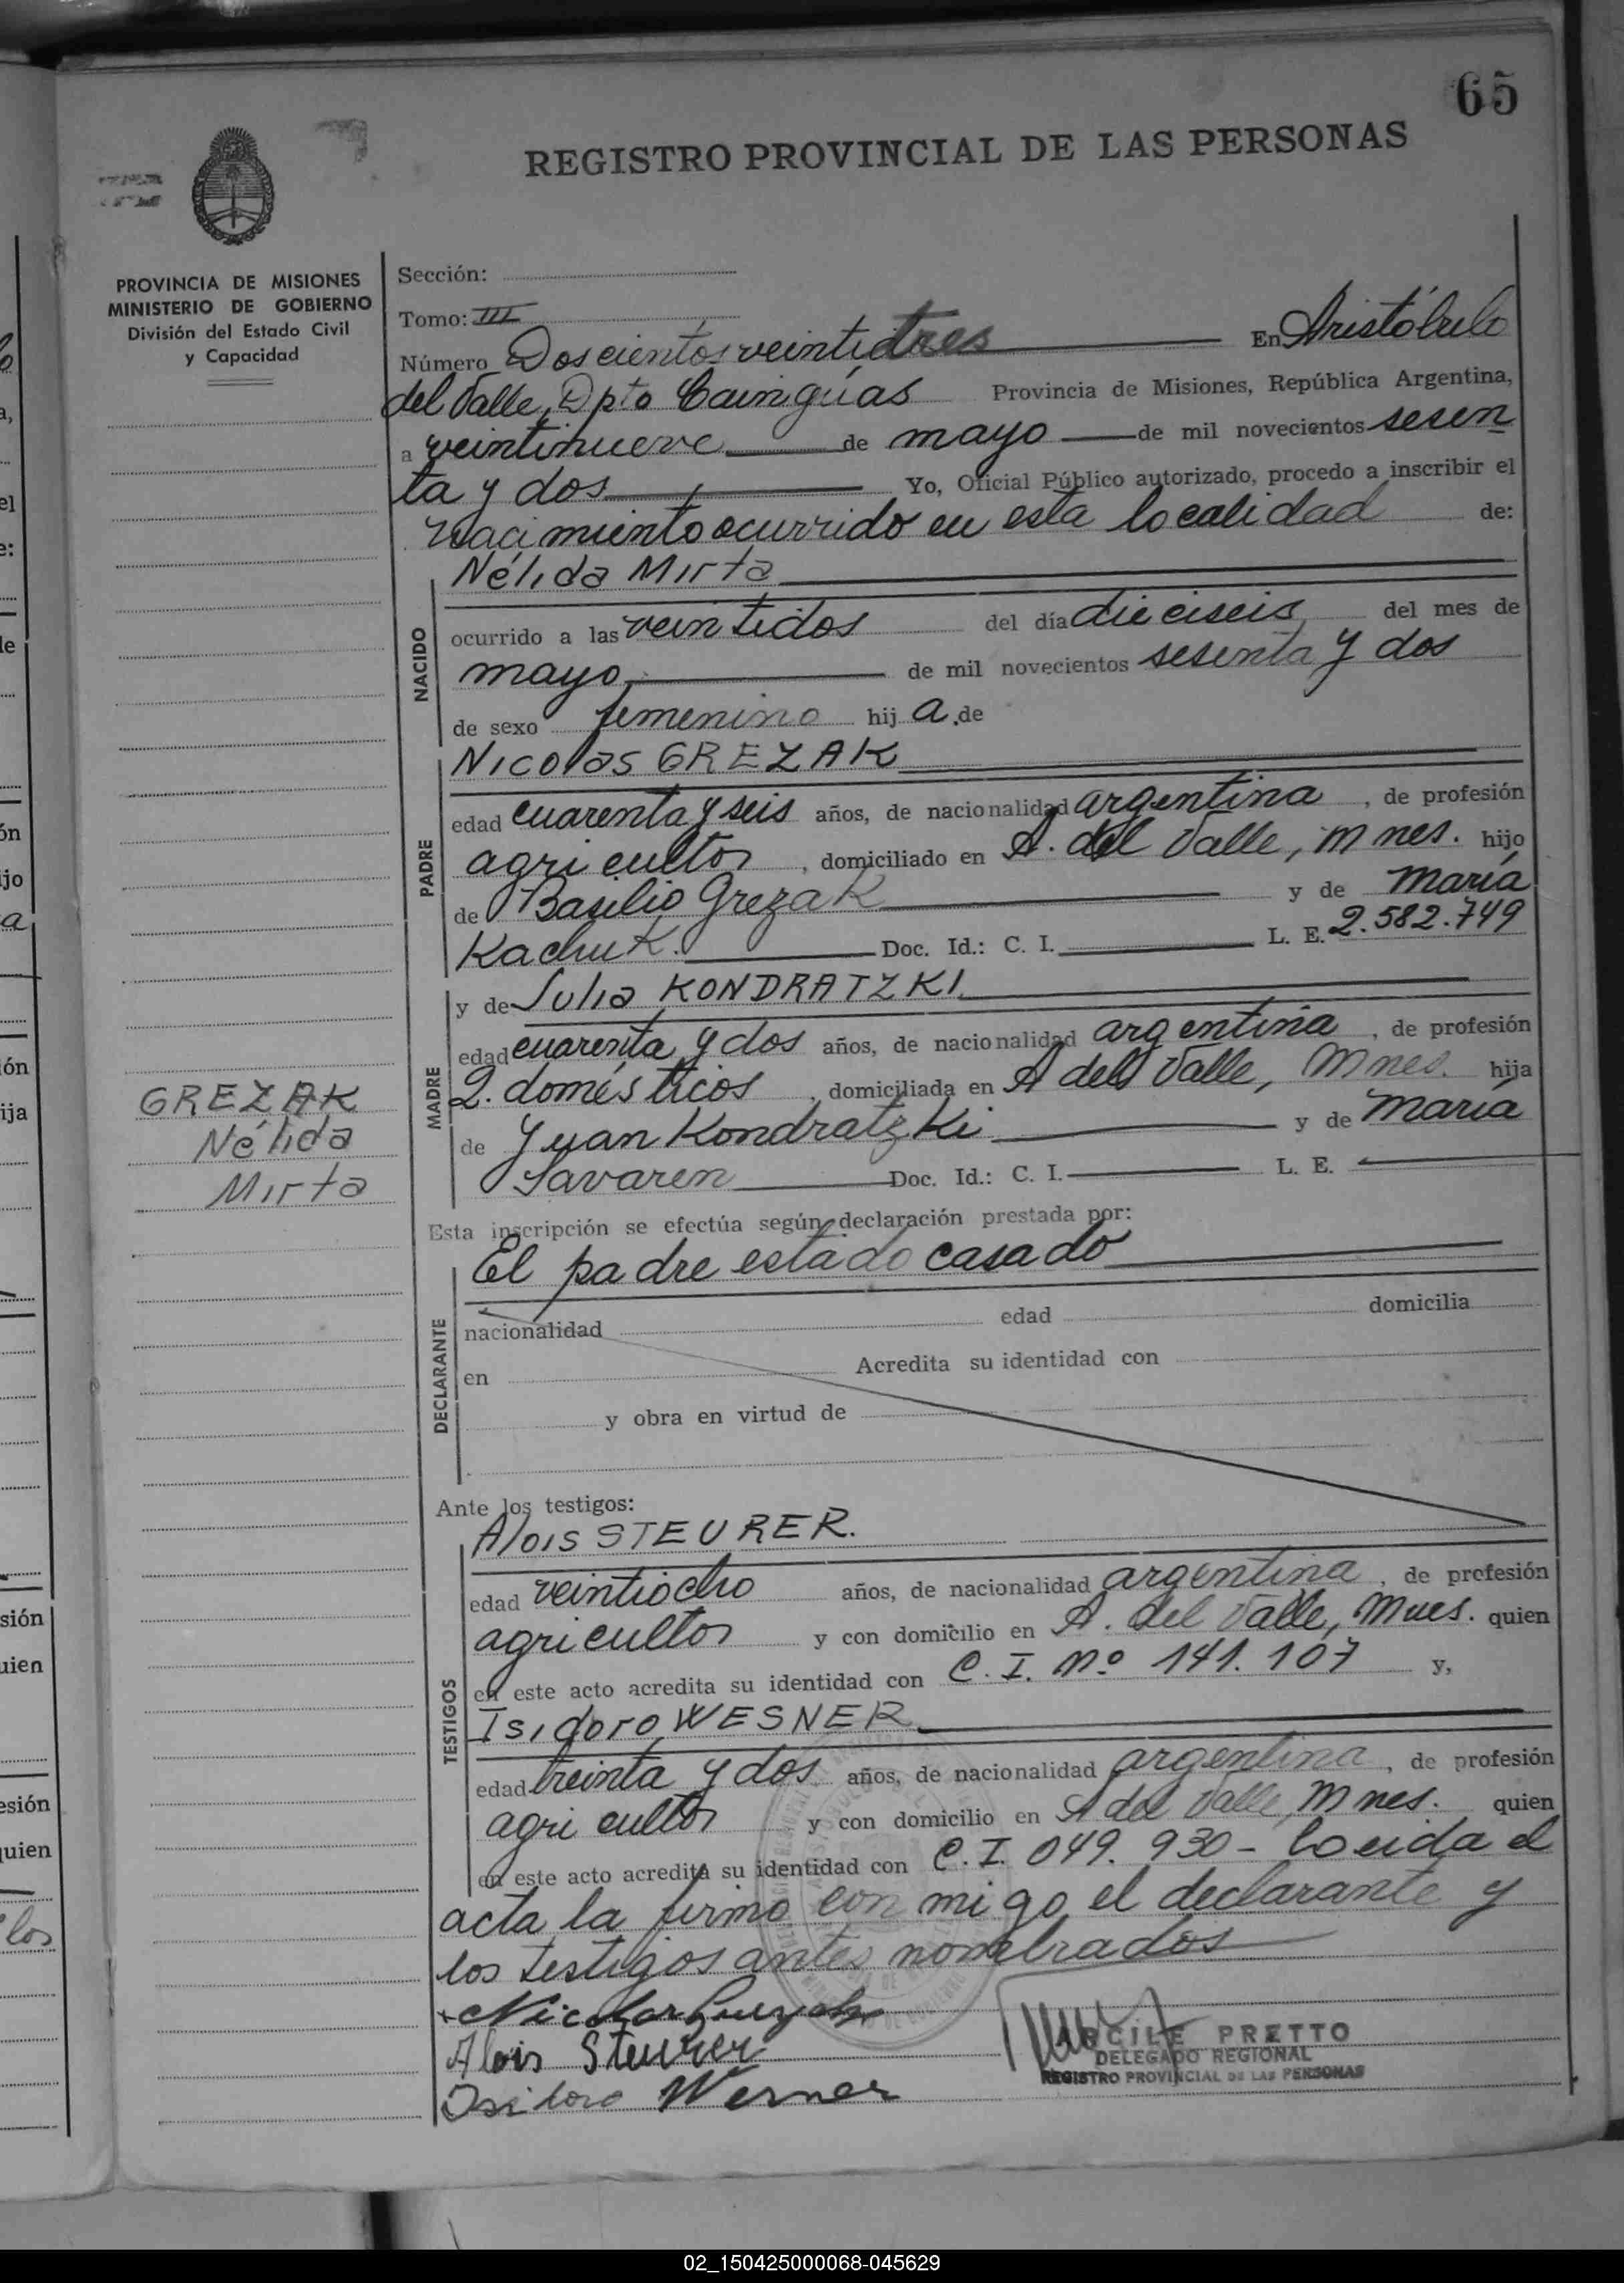 65
REGISTRO PROVINCIAL DE LAS PERSONAS
PROVINCIA DE MISIONES
MINISTERIO DE GOBIERNO
División del Estado Civil
y Capacidad
Sección:
Tomo: III
Número Doscientos veintitres En Aristóbulo
del Valle, Dpto Cainguas Provincia de Misiones, República Argentina,
a veintinueve de mayo de mil novecientos sesen
ta y dos Yo, Oficial Público autorizado, procedo a inscribir el
nacimiento ocurrido en esta localidad de:
NACIDO
Nélida Mirta
ocurrido a las veintidos del día dieciseis del mes de
mayo de mil novecientos sesenta y dos
de sexo femenino hij a de
PADRE
Nicolas GREZAK
edad cuarenta y seis años, de nacionalidad argentina, de profesión
agricultor, domiciliado en A. del Valle, Mnes. hijo
de Basilio Grezak y de María
Kachuk. Doc. Id.: C. I. L. E. 2.582.749
MADRE
y de Julia KONDRATZKI
edad cuarenta y dos años, de nacionalidad argentina, de profesión
Q. domésticos, domiciliada en A del Valle, Mnes. hija
de Juan Kondratzki y de María
Savaren Doc. Id.: C. I. L. E.
GREZAK
Nélida
Mirta
Esta inscripción se efectúa según declaración prestada por:
DECLARANTE
El padre estado casado
nacionalidad edad domicilia
en Acredita su identidad con
y obra en virtud de
Ante los testigos:
TESTIGOS
Alois STEURER.
edad veintiocho años, de nacionalidad argentina, de profesión
agricultor y con domicilio en A. del Valle, Mnes. quien
en este acto acredita su identidad con C. I. Nº 141.107 y,
Isidoro WESNER
edad treinta y dos años, de nacionalidad argentina, de profesión
agricultor y con domicilio en A del Valle, Mnes. quien
en este acto acredita su identidad con C. I. 049.930 - Leida el
acta la firmo con migo el declarante y
los testigos antes nombrados
Nicolas Grezak
Alois Steurer
Isidoro Wesner
ARCILE PRETTO
DELEGADO REGIONAL
REGISTRO PROVINCIAL DE LAS PERSONAS
02_150425000068-045629